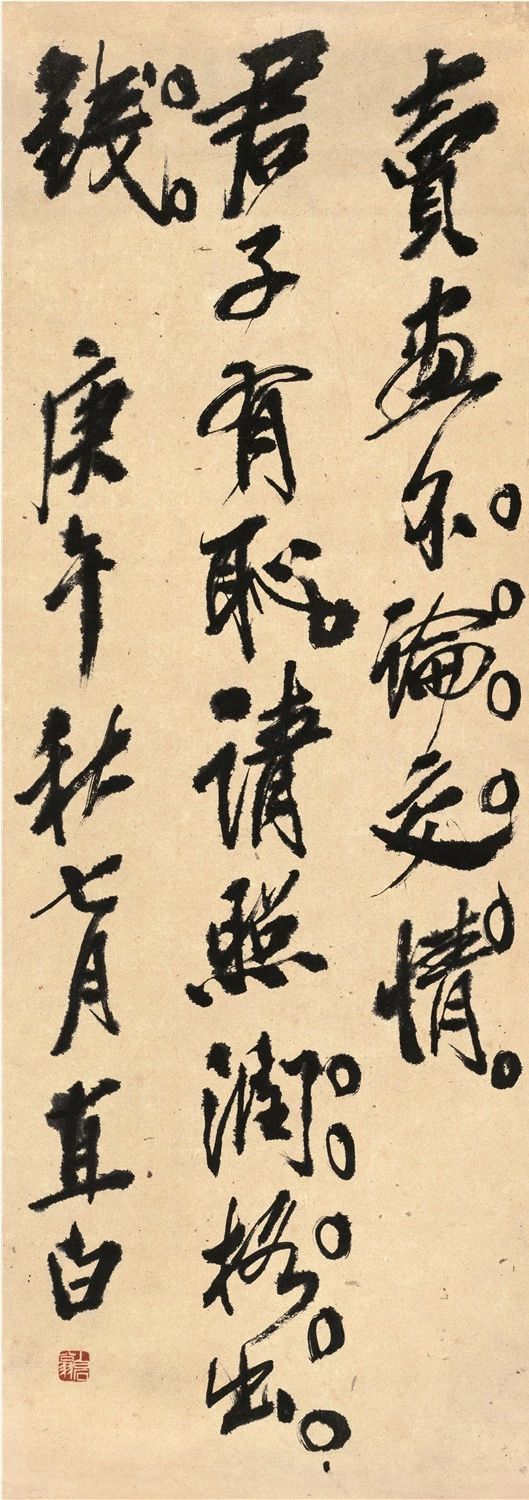 賣畫不論交情
君子有恥請照潤格出
錢。庚午秋七月直白